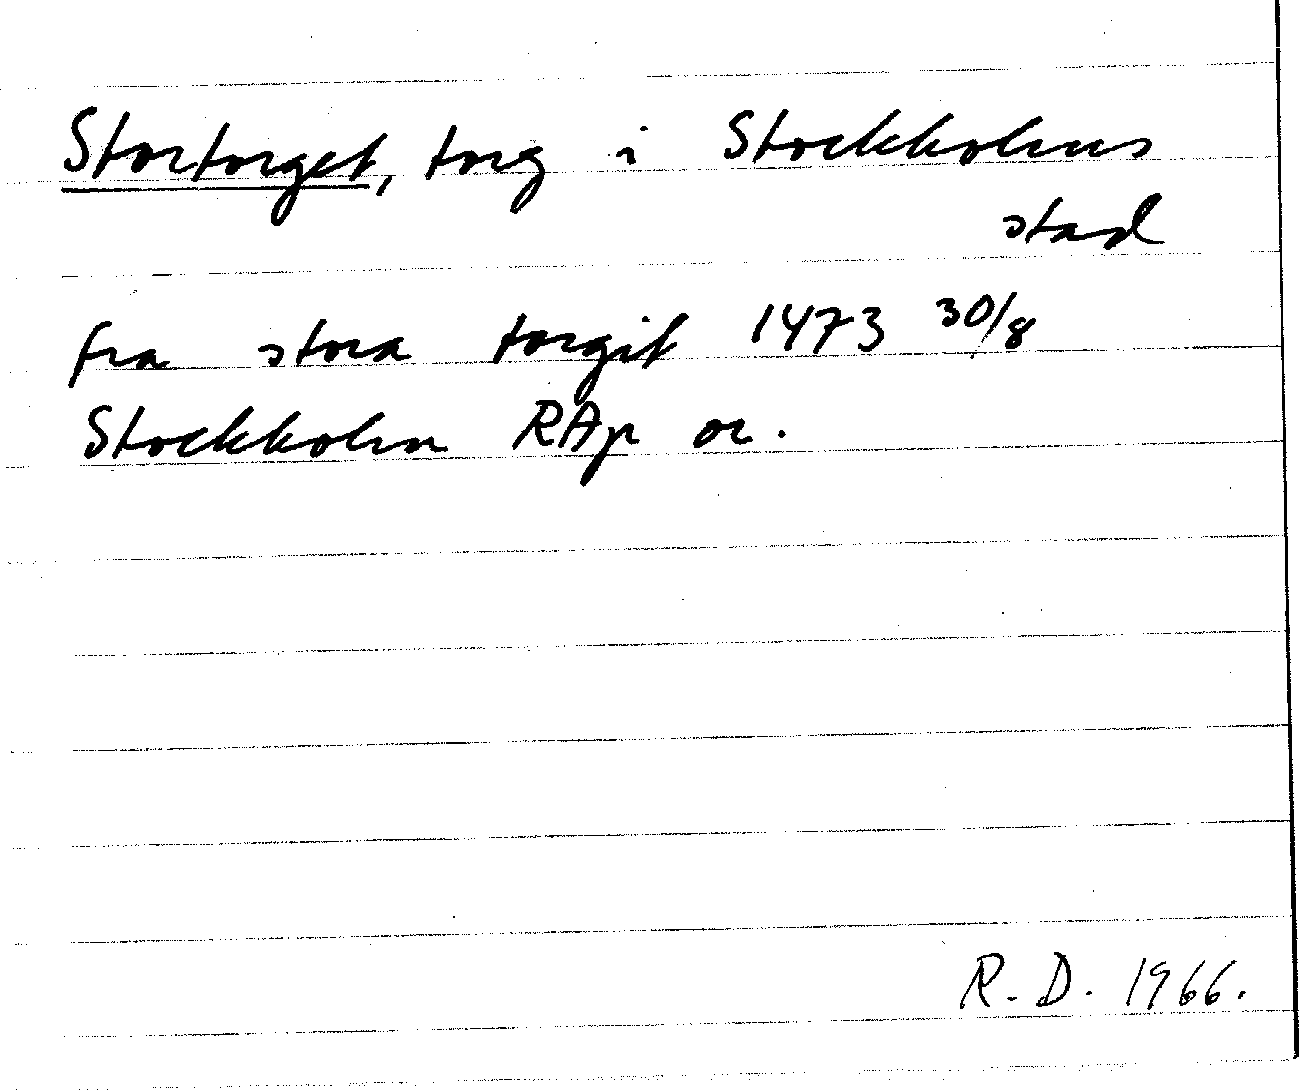 Stortorget, torg i Stockholms
stad
fra stora torgit 1473 30/8
Stockholm RAp or.
R. D. 1966.